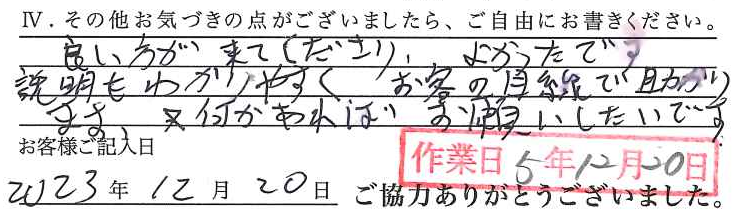 Ⅳ．その他お気づきの点がございましたら、ご自由にお書きください。
良い方が来てくださり、よかったです
説明もわかりやすく お客の目線で助かり
ます、又何かあればお願いしたいです
お客様ご記入日
作業日 5年12月20日
2023年 12月 20日 ご協力ありがとうございました。